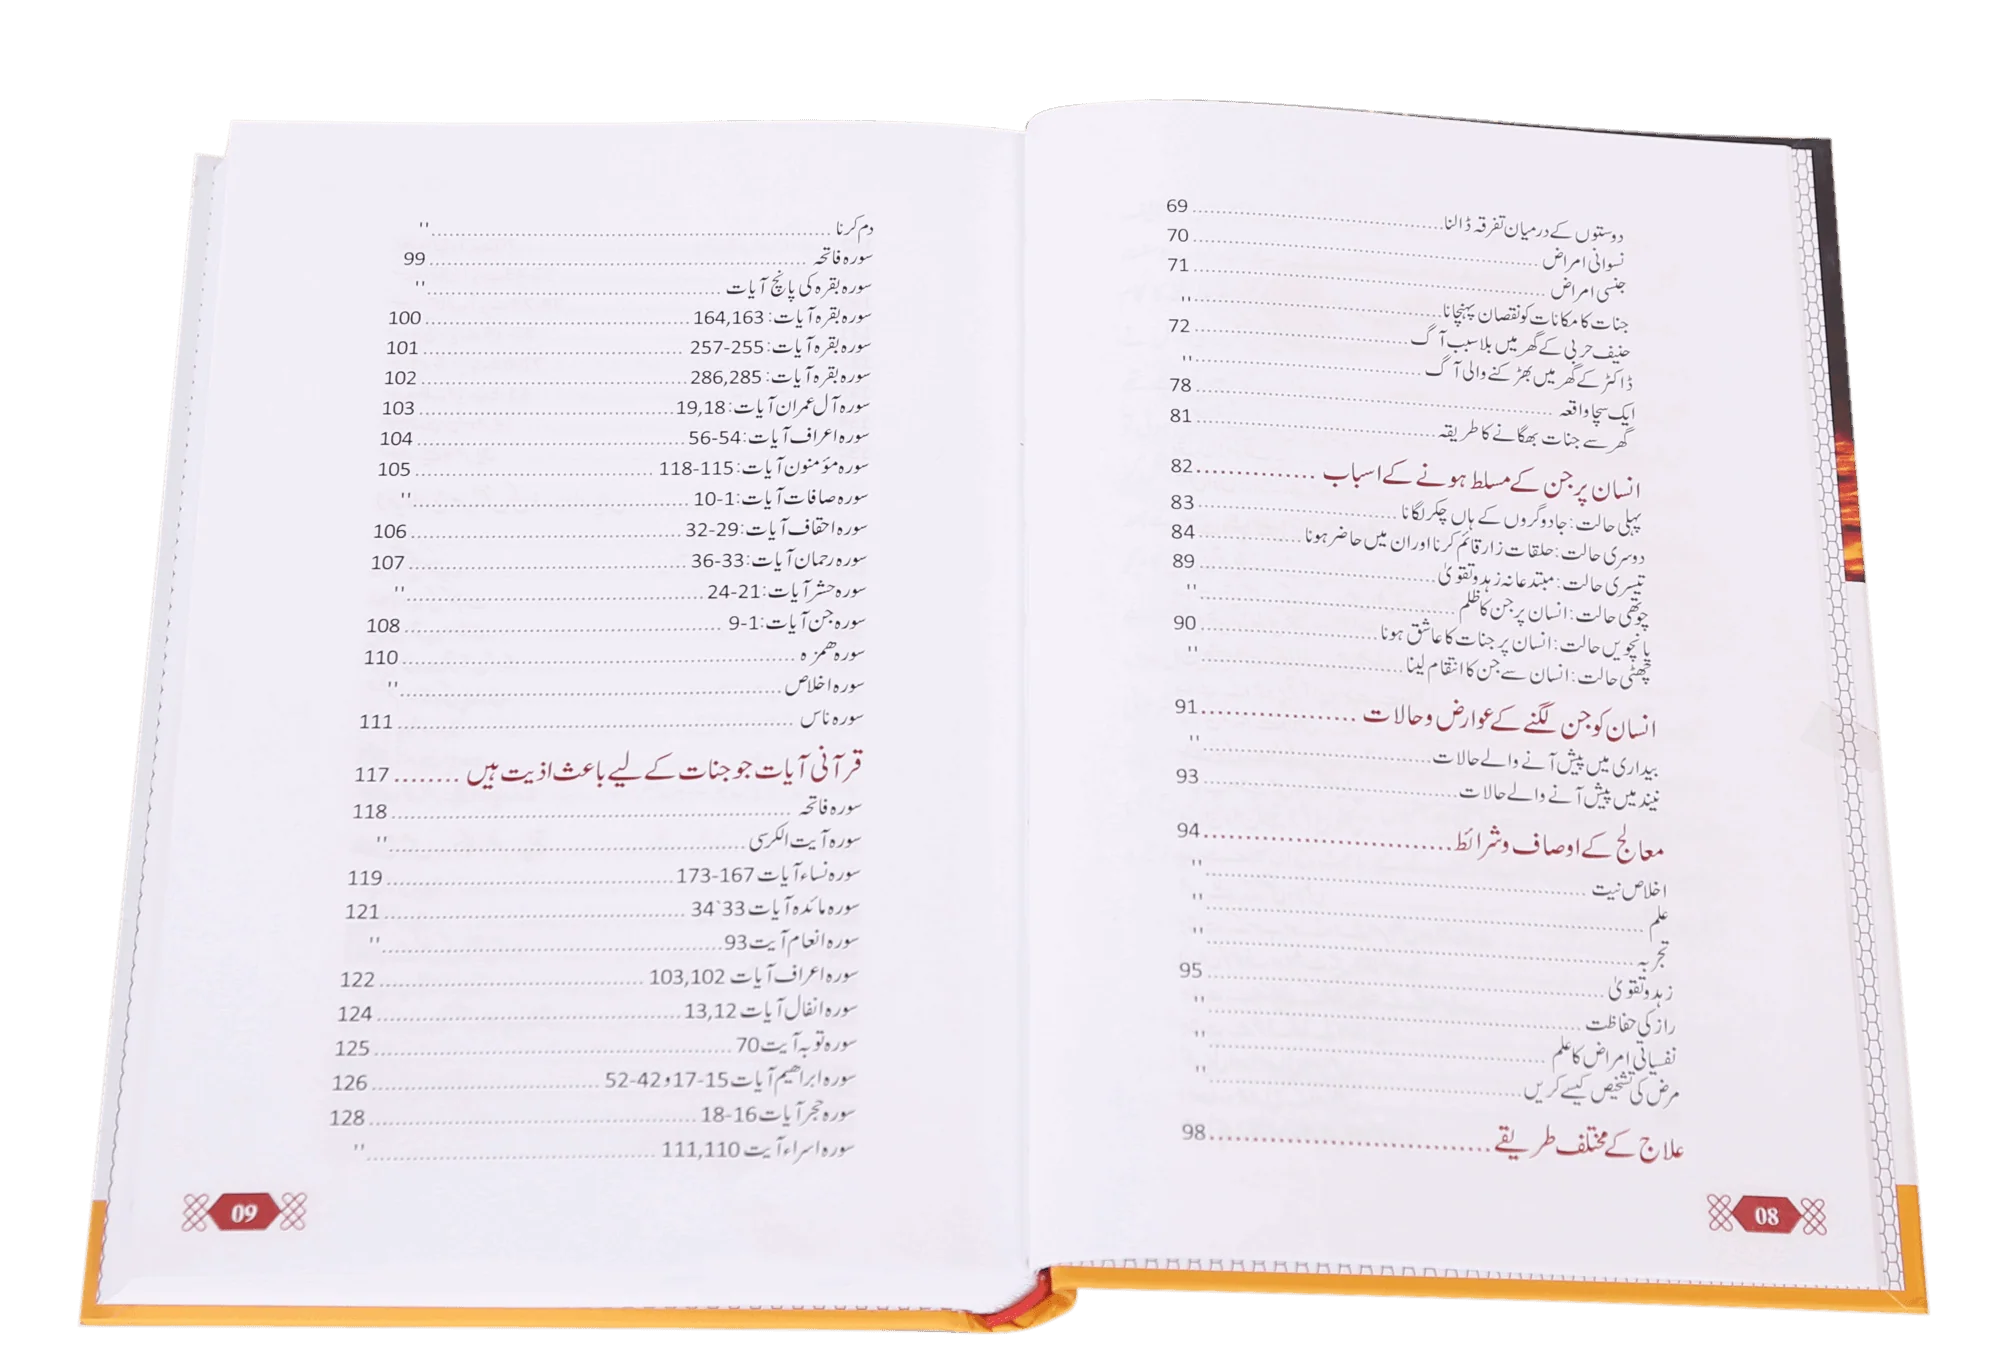 دوستوں کے درمیان تفرقہ ڈالنا........................69
نسوانی امراض........................70
جنسی امراض........................71
جنات کا مکانات کو نقصان پہنچانا........................"
حنیف حربی کے گھر میں بلا سبب آگ........................72
ڈاکٹر کے گھر میں بھڑکنے والی آگ........................"
ایک سچا واقعہ........................78
گھر سے جنات بھگانے کا طریقہ........................81
انسان پر جن کے مسلط ہونے کے اسباب..............82
پہلی حالت: جادوگروں کے ہاں چکر لگانا........................83
دوسری حالت: حلقات زار قائم کرنا اور ان میں حاضر ہونا..............84
تیسری حالت: مبتدعانہ زہد و تقویٰ........................89
چوتھی حالت: انسان پر جن کا ظلم........................"
پانچویں حالت: انسان پر جنات کا عاشق ہونا........................90
چھٹی حالت: انسان سے جن کا انتقام لینا........................"
انسان کو جن لگنے کے عوارض و حالات..................91
بیداری میں پیش آنے والے حالات........................"
نیند میں پیش آنے والے حالات........................93
معالج کے اوصاف و شرائط........................94
اخلاص نیت........................"
علم........................"
تجربہ........................"
زہد و تقویٰ........................95
راز کی حفاظت........................"
نفسیاتی امراض کا علم........................"
مرض کی تشخیص کیسے کریں........................"
علاج کے مختلف طریقے........................98
08
دم کرنا........................"
سورہ فاتحہ........................99
سورہ بقرہ کی پانچ آیات........................"
سورہ بقرہ آیات: 164,163........................100
سورہ بقرہ آیات: 255-257........................101
سورہ بقرہ آیات: 286,285........................102
سورہ آل عمران آیات: 19,18........................103
سورہ اعراف آیات: 54-56........................104
سورہ مؤمنون آیات: 115-118........................105
سورہ صافات آیات: 1-10........................"
سورہ احقاف آیات: 29-32........................106
سورہ رحمان آیات: 33-36........................107
سورہ حشر آیات: 21-24........................"
سورہ جن آیات: 1-9........................108
سورہ ھمزہ........................110
سورہ اخلاص........................"
سورہ ناس........................111
قرآنی آیات جو جنات کے لیے باعث اذیت ہیں........117
سورہ فاتحہ........................118
سورہ آیت الکرسی........................"
سورہ نساء آیات 167-173........................119
سورہ مائدہ آیات 33`34........................121
سورہ انعام آیت 93........................"
سورہ اعراف آیات 103,102........................122
سورہ انفال آیات 13,12........................124
سورہ توبہ آیت 70........................125
سورہ ابراھیم آیات 15-17 و 42-52........................126
سورہ حجر آیات 16-18........................128
سورہ اسراء آیت 111,110........................"
09